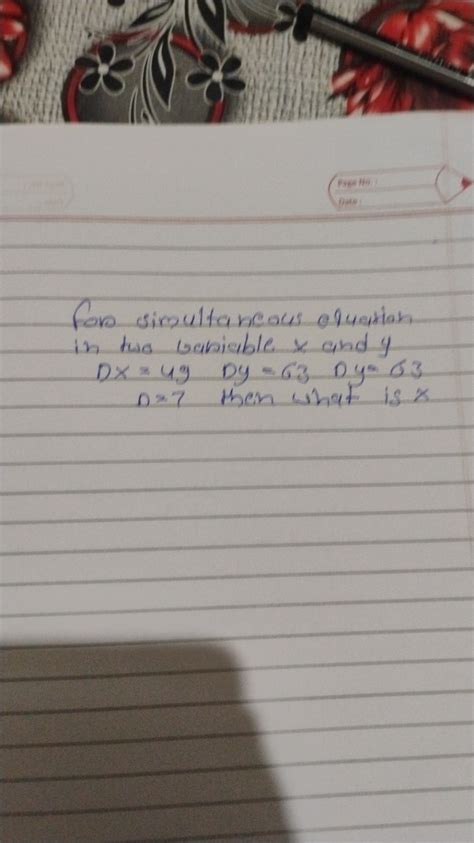 Page No. :
Date :
for simultaneous equation
in two variable x and y
Dx = 49 Dy = 63 Dy = 63
D = 7 then what is x